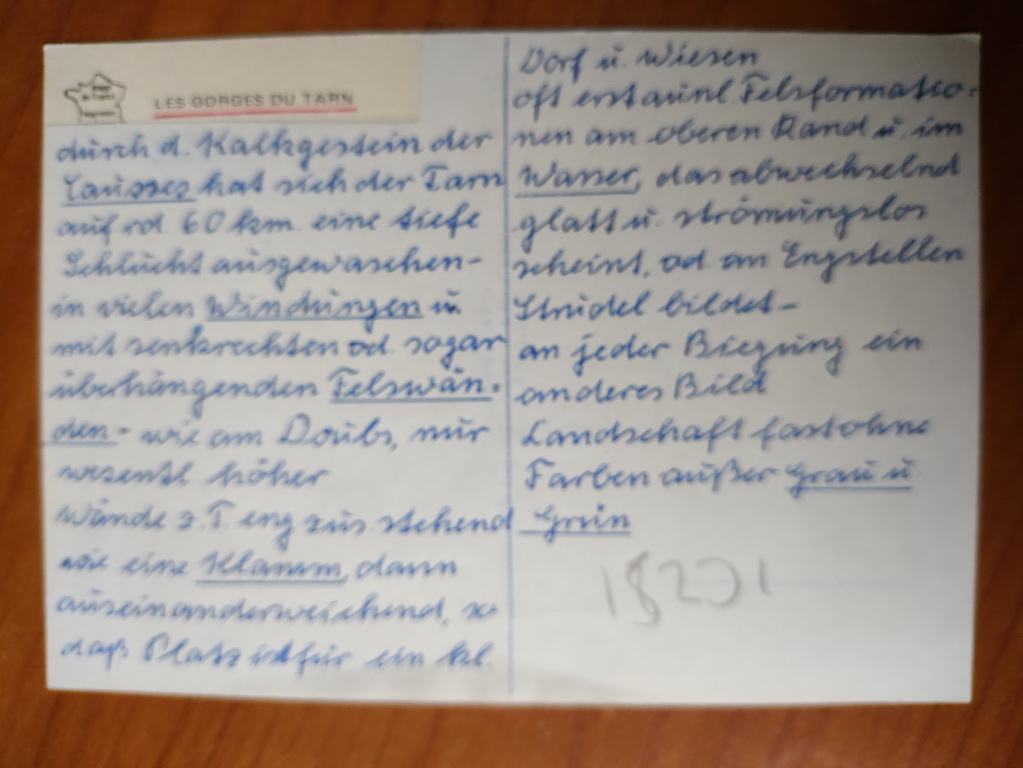 LES GORGES DU TARN
durch d. Kalkgestein der
Causses hat sich der Tarn
auf rd. 60 km eine tiefe
Schlucht ausgewaschen-
in vielen Windungen u.
mit senkrechten od. sogar
überhängenden Felswän-
den - wie am Doubs, nur
wesentl höher
Wände z.T. eng zus stehend
wie eine Klamm, dann
auseinanderweichend, so
daß Platz ist für ein kl.
Dorf u. Wiesen
oft erstaunl Felsformatio-
nen am oberen Rand u. im
Wasser, das abwechselnd
glatt u. strömungslos
scheint, od an Engstellen
Strudel bildet-
an jeder Biegung ein
anderes Bild
Landschaft fast ohne
Farben außer Grau u
Grün